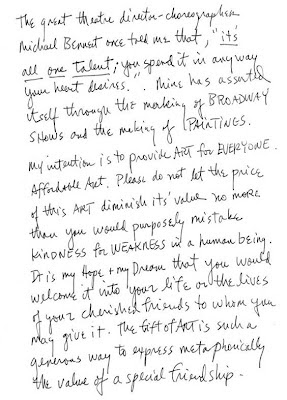 The great theatre director-choreographer
Michael Bennett once told me that, "it's
all one talent; you spend it in anyway
your heart desires.". Mine has asserted
itself through the making of BROADWAY
SHOWS and the making of PAINTINGS.
My intention is to provide ART for EVERYONE.
Affordable Art. Please do not let the price
of this ART diminish its' value no more
than you would purposely mistake
KINDNESS for WEAKNESS in a human being.
It is my Hope + my Dream that you would
welcome it into your life or the lives
of your cherished friends to whom you
may give it. The Gift of Art is such a
generous way to express metaphorically
the value of a special friendship.